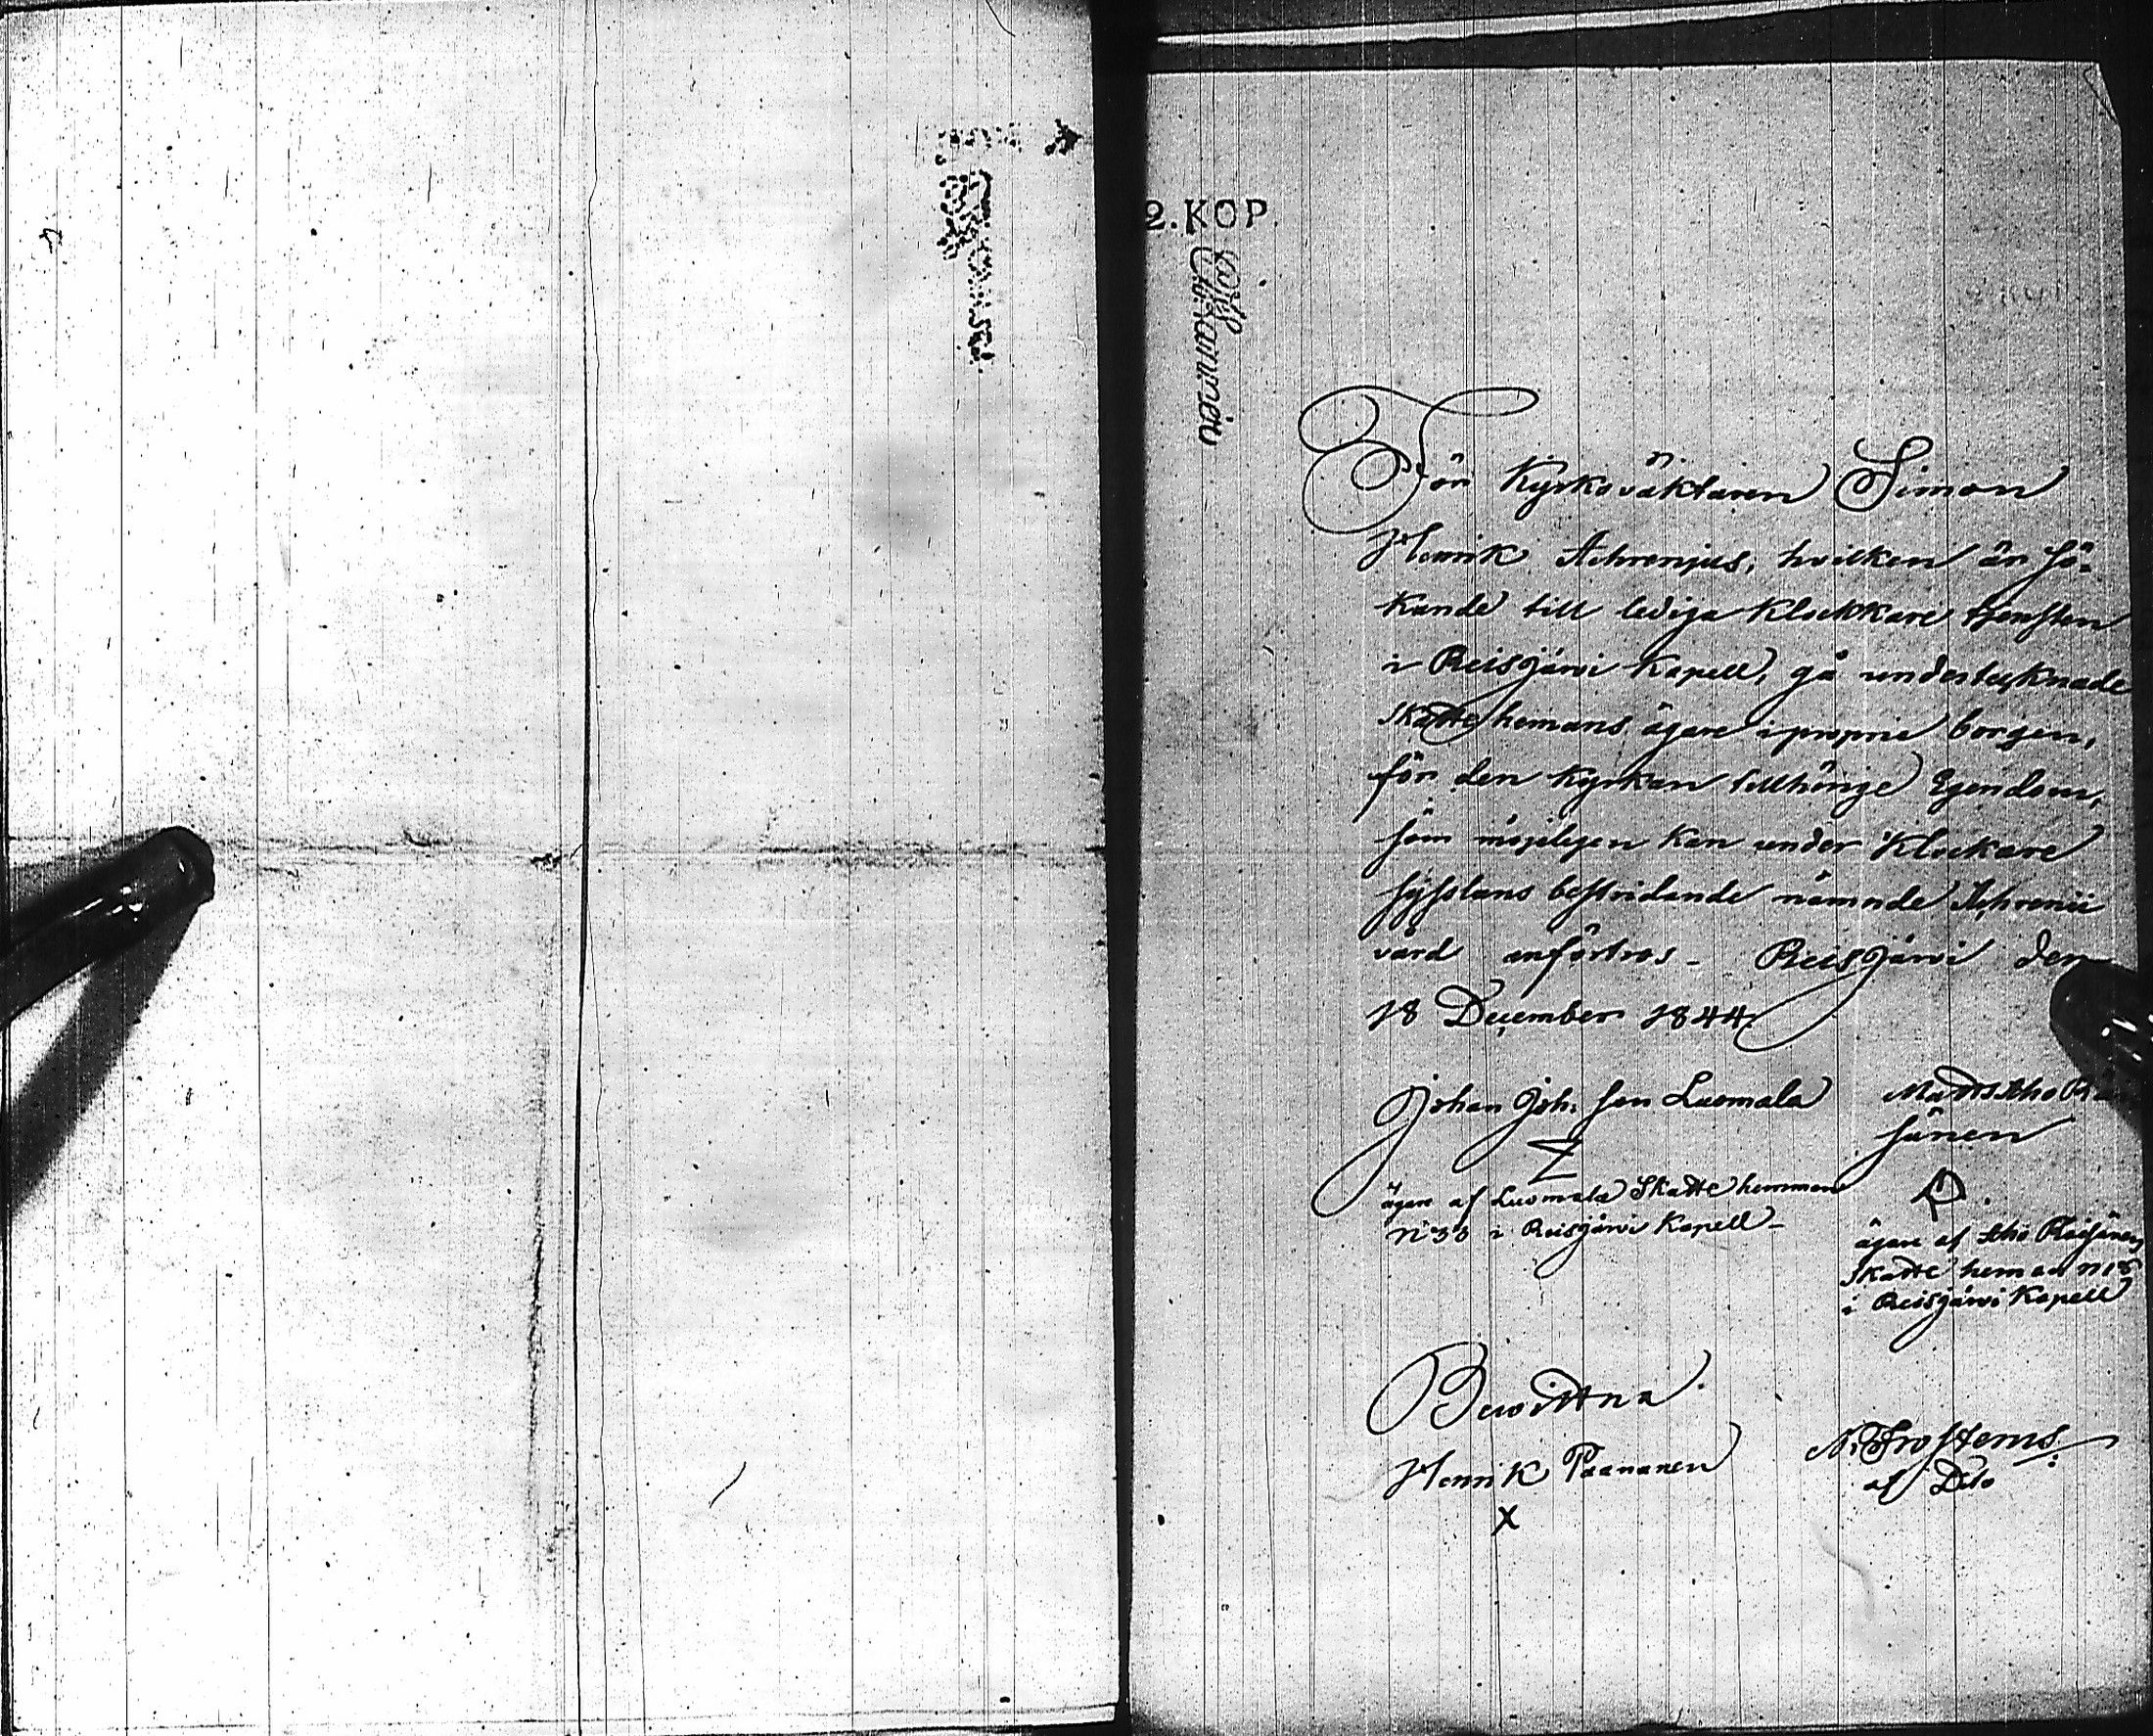 2.KOP
För Kyrkoväktaren Simon
Henrik Achrenjus, hvilken är sö-
kande till lediga Klockkare tjensten
i Reisjärvi Kapell, gå undertecknade
Skatte hemans ägare i proprie borgen,
för den Kyrkan tillhörige Egendom,
som möjeligen kan under Klockare
sysslans bestridande nämnde Achrenii
vård anförtros - Reisjärvi den
18 December 1844
Johan Joh. son Luomala
ägare af Luomala Skatte hemman
N:33 i Reisjärvi Kapell -
Matts Aho
sänen
ägare af Aho
Skatte heman N18
i Reisjärvi Kapell
Bewittna
Henrik Paananen
X
N. Frosterus
af Dito